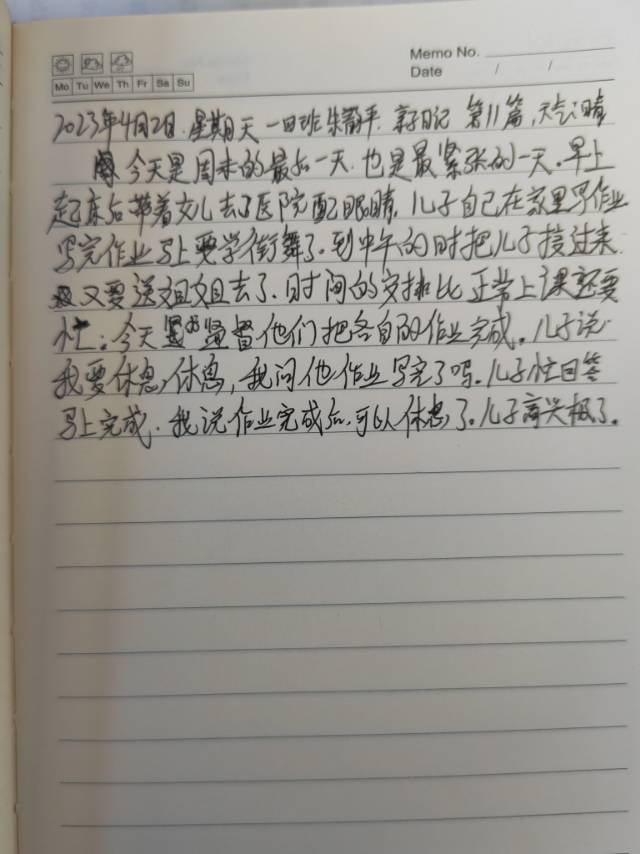 Memo No.
Date / /
Mo Tu We Th Fr Sa Su
2023年4月2日.星期天 一四班朱静平. 亲子日记 第11篇,天气:晴
今天是周末的最后一天.也是最紧张的一天.早上
起床后带着女儿去了医院配眼睛.儿子自己在家里写作业
写完作业马上要学街舞了.到中午的时把儿子接过来.
又要送姐姐去了.时间的安排比正常上课还要
忙:今天 监督他们把各自的作业完成.儿子说
我要休息,休息,我问他作业写完了吗.儿子忙回答
马上完成.我说作业完成后,可以休息了.儿子高兴极了.